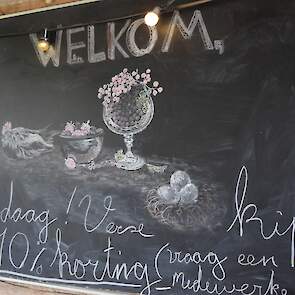 WELKOM,
daag! Verse kip
10% korting (vraag een
medewerke